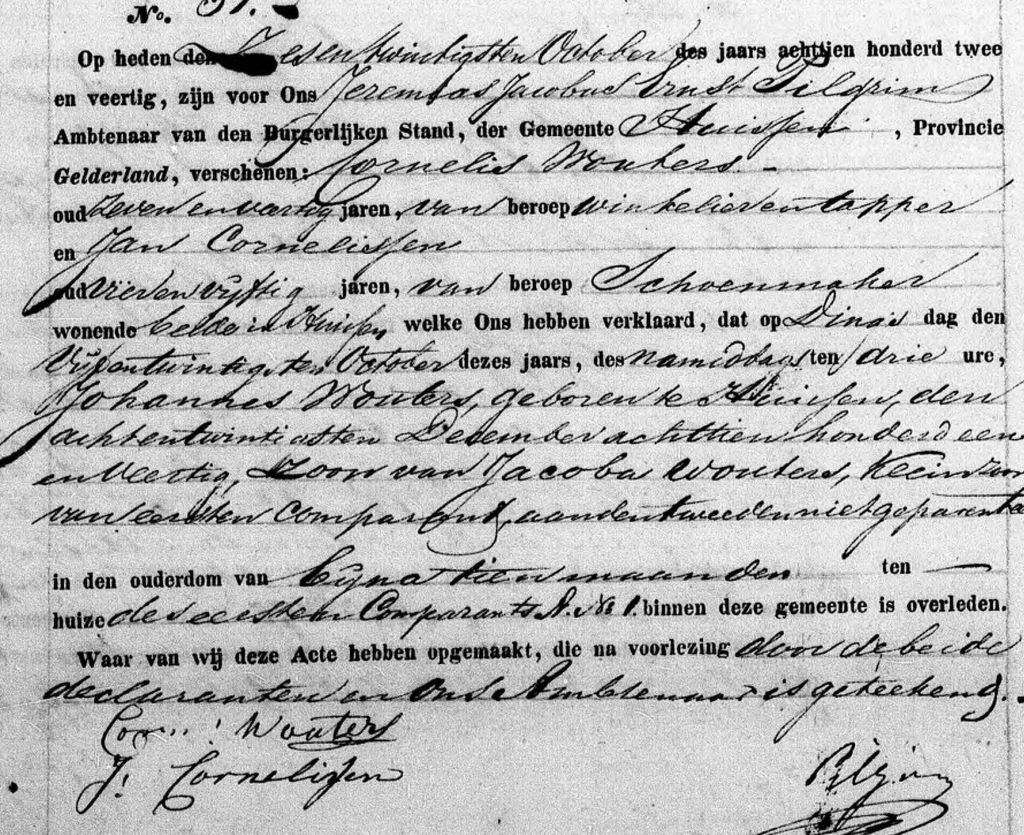 No. 
Op heden den Zesentwintigsten October des jaars achttien honderd twee
en veertig, zijn voor Ons Jeremias Jacobus Ernst Pilgrim
Ambtenaar van den Burgerlijken Stand, der Gemeente Huissen, Provincie
Gelderland, verschenen: Cornelis Wouters.
oud Zeven en veertig jaren, van beroep winkelier en tapper
en Jan Cornelissen
oud vier en vijftig jaren, van beroep Schoenmaker
wonende beide in Huissen welke Ons hebben verklaard, dat op Dings dag den
Vijfentwintigsten October dezes jaars, des namiddags ten drie ure,
Johannes Wouters, geboren te Huissen, den
achtentwintigsten December achttien honderd een
en Veertig, Zoon van Jacoba Wouters, Kleinzoon
van eersten Comparant, aan den tweeden niet geparenteerd
in den ouderdom van bijna tien maanden ten —
huize des eersten Comparants A. No 1. binnen deze gemeente is overleden.
Waar van wij deze Acte hebben opgemaakt, die na voorlezing door de beide
declaranten en Ons Ambtenaar is geteekend.
Corn: Wouters
J: Cornelissen
Pilgrim